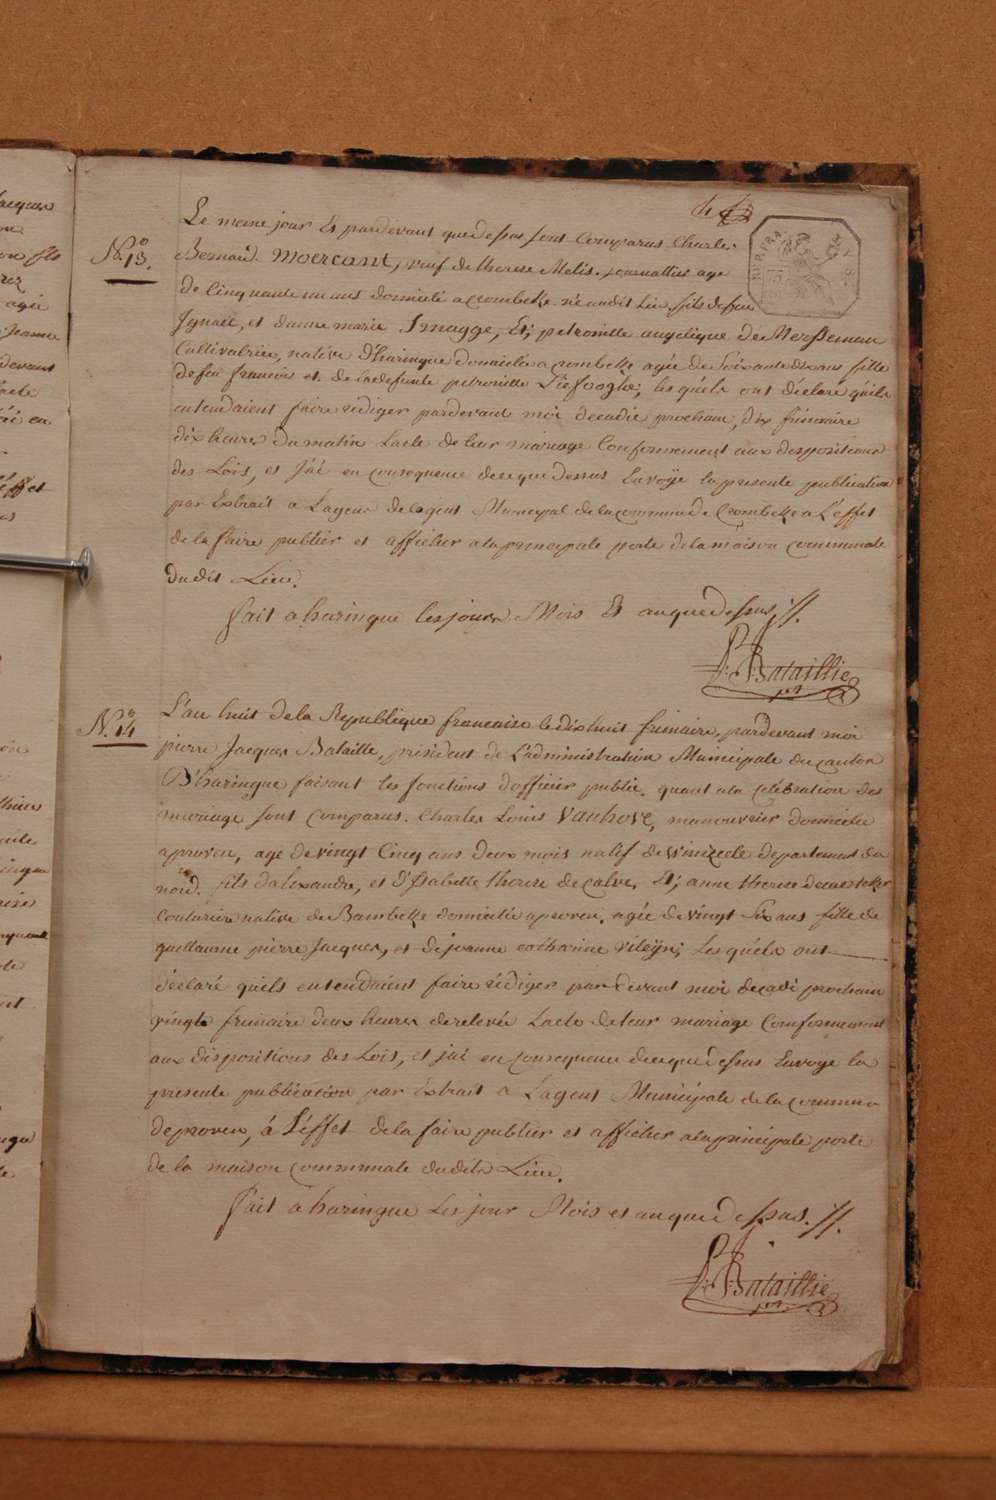 No. 13.
Le meme jour Et pardevant que dessus sont Comparus Charles
Bernard Moercant, veuf de therese Melis, journallier age
de Cinquante un ans domicilié a crombeke né audit Lieu, fils de feu
Ignace, et d'anne marie Smagge, Et; petronille angelique de Mersseman
Cultivatrice, native d'haringue domiciliée a crombeke agée de Soixante dix ans fille
de feu francois et de la defunte petronille Liefooghe; les quéls ont déclaré qu'ils
entendaient faire rédiger pardevant moi decadi prochain, dix frimaire
dix heures du matin Lacte de leur mariage Conformement aux dispositions
des Lois, et j'ái en consequence de ce que dessus Envoÿé la presente publication
par Extrait a Lagent Municipal de la commune de Crombeke a L'effet
de la faire publier et afficher a la principale porte de la maison communale
du dit Lieu.
fait a haringue les jour, Mois Et an que dessus ·//.
P: J: Bataillie
No. 14
L'an huit de la Republique francaise le dix huit frimaire, pardevant moi
pierre Jacques Bataille, président de L'administration Municipale du canton
D'haringue faisant les fonctions d'officier public, quant a la célébration des
mariage sont comparus. Charles Louis Vanhove, manouvrier domicilié
a proven, age de vingt Cinq ans deux mois natif de Winizeele departement du
nord. fils d'alexandre, et d'Isabelle therese de calve, Et; anne therese
Couturiere native de Bambeke domiciliée a proven, agée de vingt Six ans fille de
guillaume pierre Jacques, et de jeanne catharine vileÿn; Les quéls ont
déclaré quéls entendaient faire rédiger par devant moi decadi prochain
vingt frimaire deux heures de relevée Lacte de leur mariage Conformement
aux dispositions des Lois, et jai en consequence de ce que dessus Envoye la
presente publication par Extrait a Lagent Municipale de la commune
de proven, á L'éffet de la faire publier et afficher a la principale porte
de la maison communale du dit Lieu.
fait a haringue Les jour Mois et an que dessus. ·//.
P: J: Bataillie